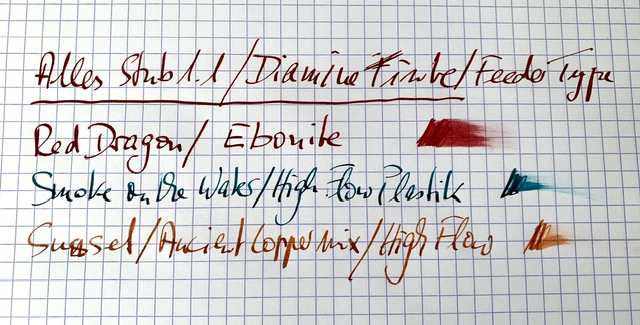 Alles Stub 1.1 / Diamine Tinte / Feeder Type
Red Dragon / Ebonite
Smoke on the Water / High Flow Plastik
Sunset / Ancient Copper mix / High Flow